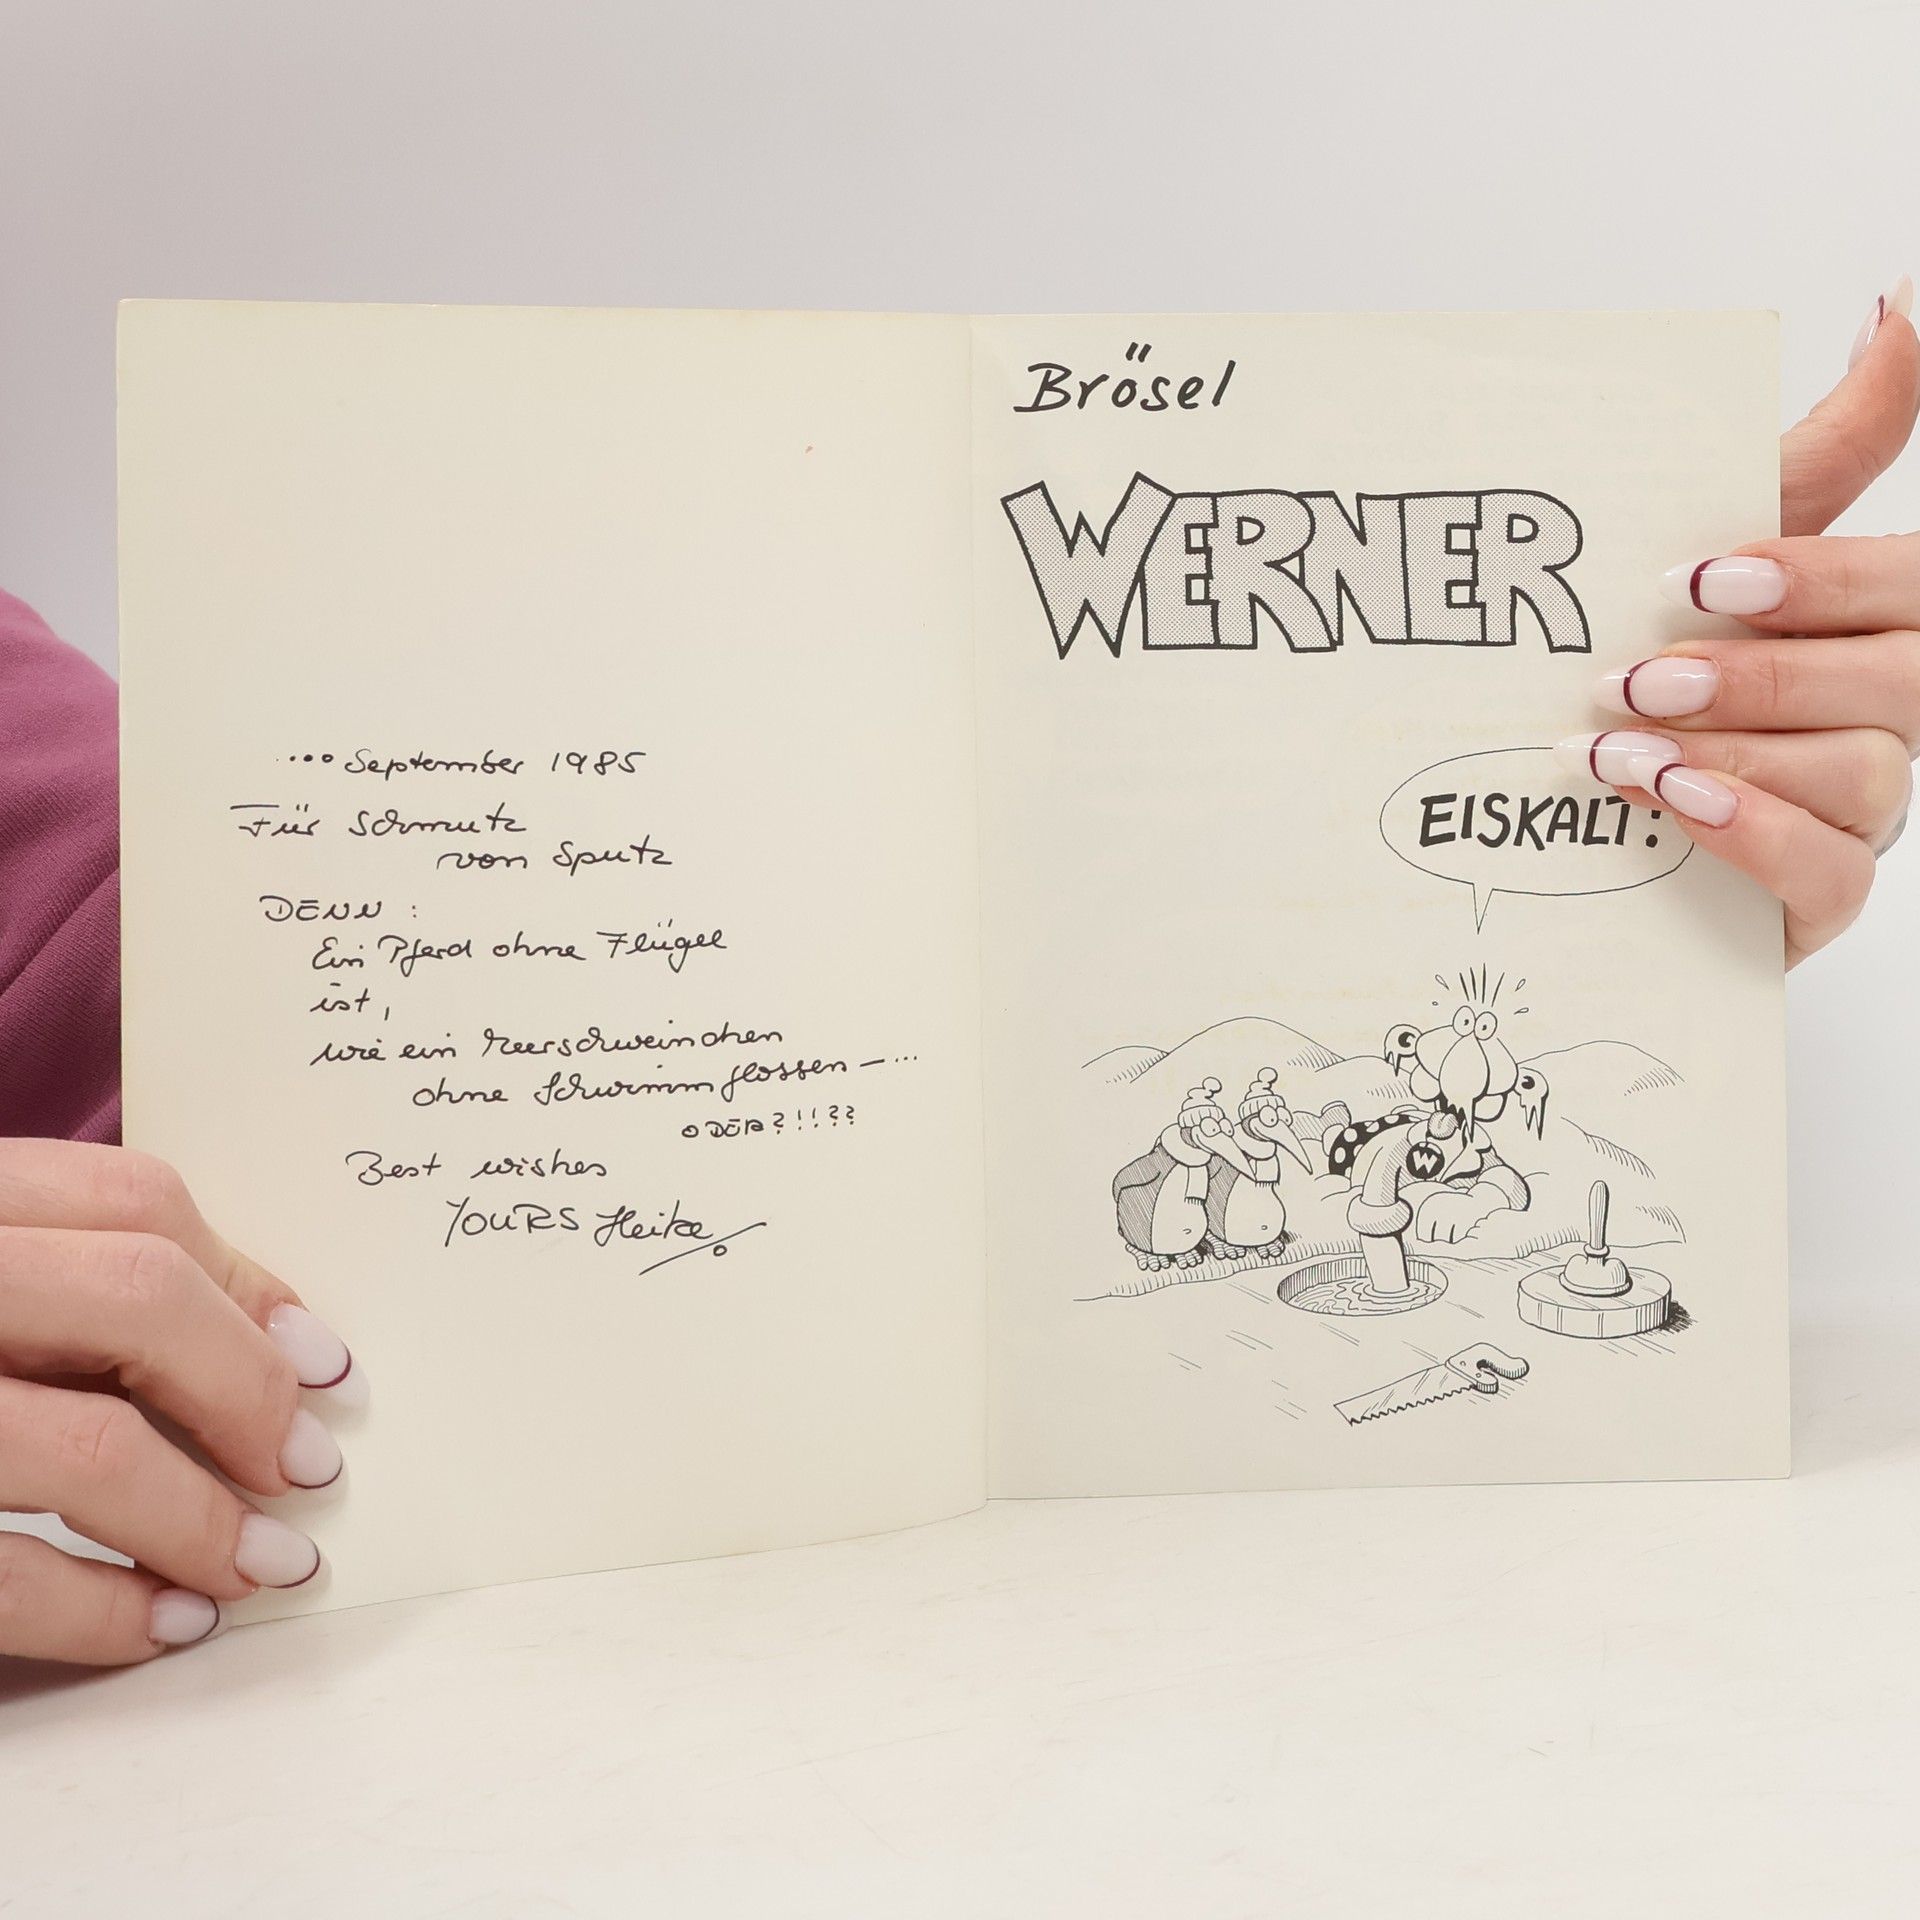 ...September 1985
Für Schmutz
von Sputz
DENN :
Ein Pferd ohne Flügel
ist,
wie ein Meerschweinchen
ohne Schwimmflossen — ...
ODER?!!??
Best wishes
YOURS Heike
Brösel
WERNER
EISKALT!
W